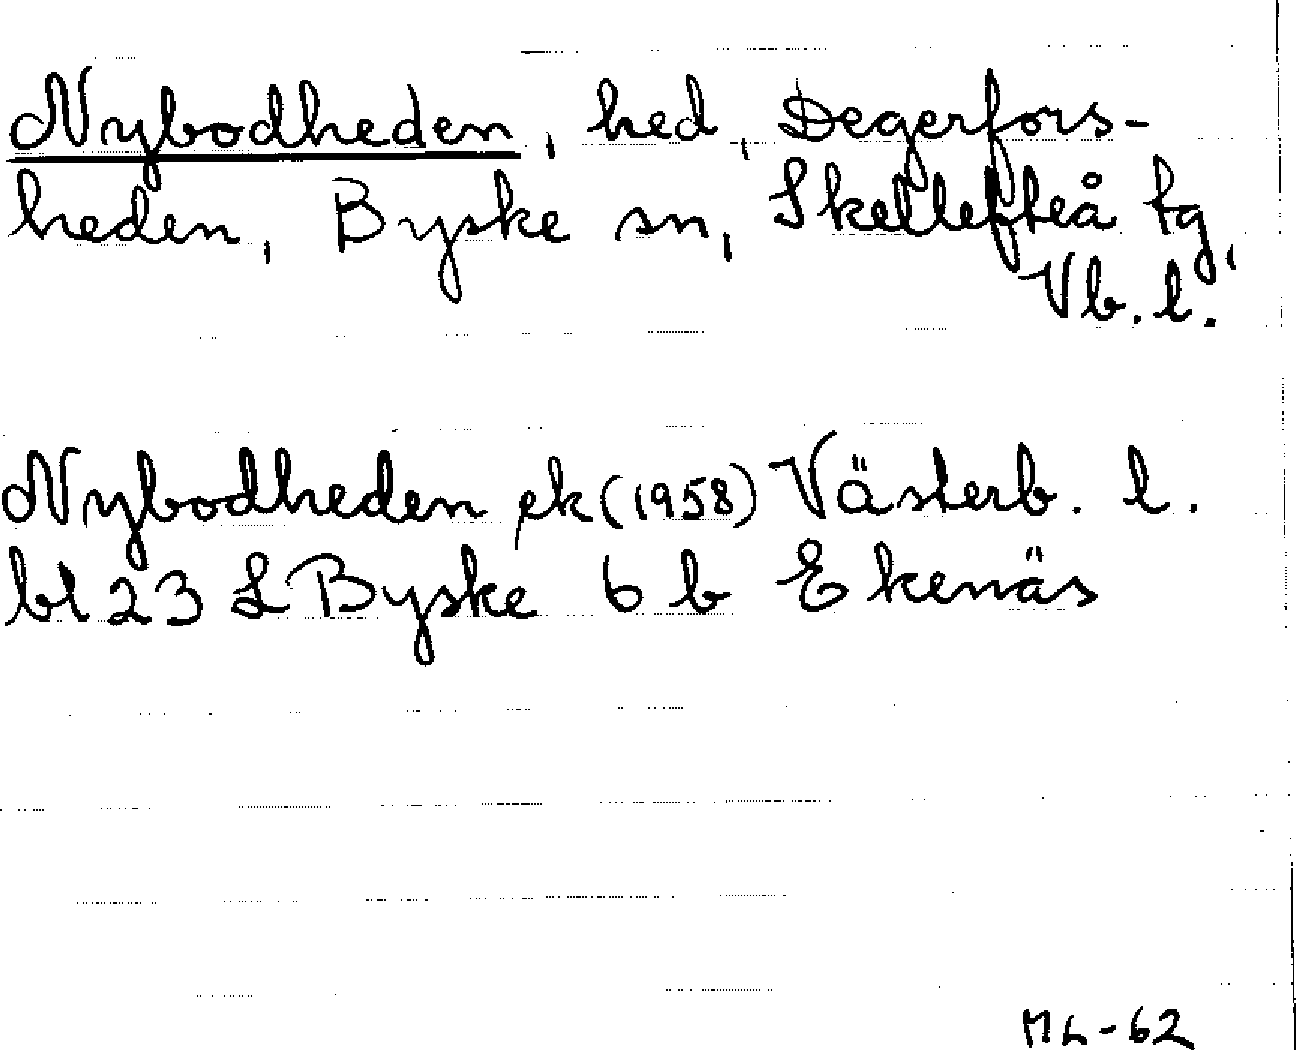 Nybodheden, hed, Degerfors-
heden, Byske sn, Skellefteå tg,
Vb. l.
Nybodheden ek (1958) Västerb. l.
bl 23 L Byske 6 b Ekenäs
ML-62